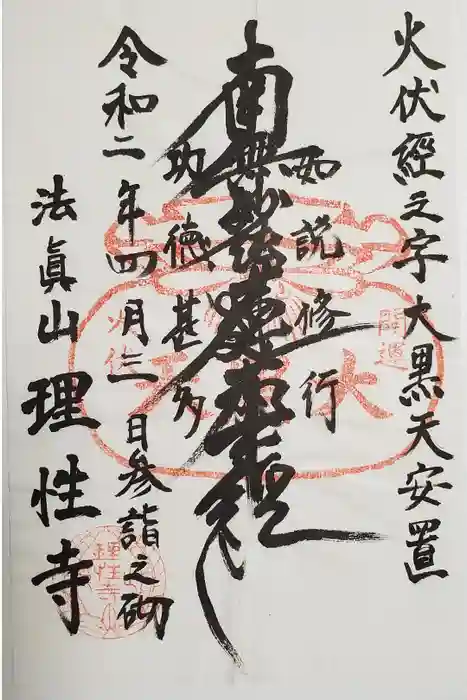 火伏經之字大黒天安置
如説修行
南無妙法蓮華経
功徳甚多
令和二年四月二日参詣之砌
法眞山理性寺
開運
大
火伏
理性寺